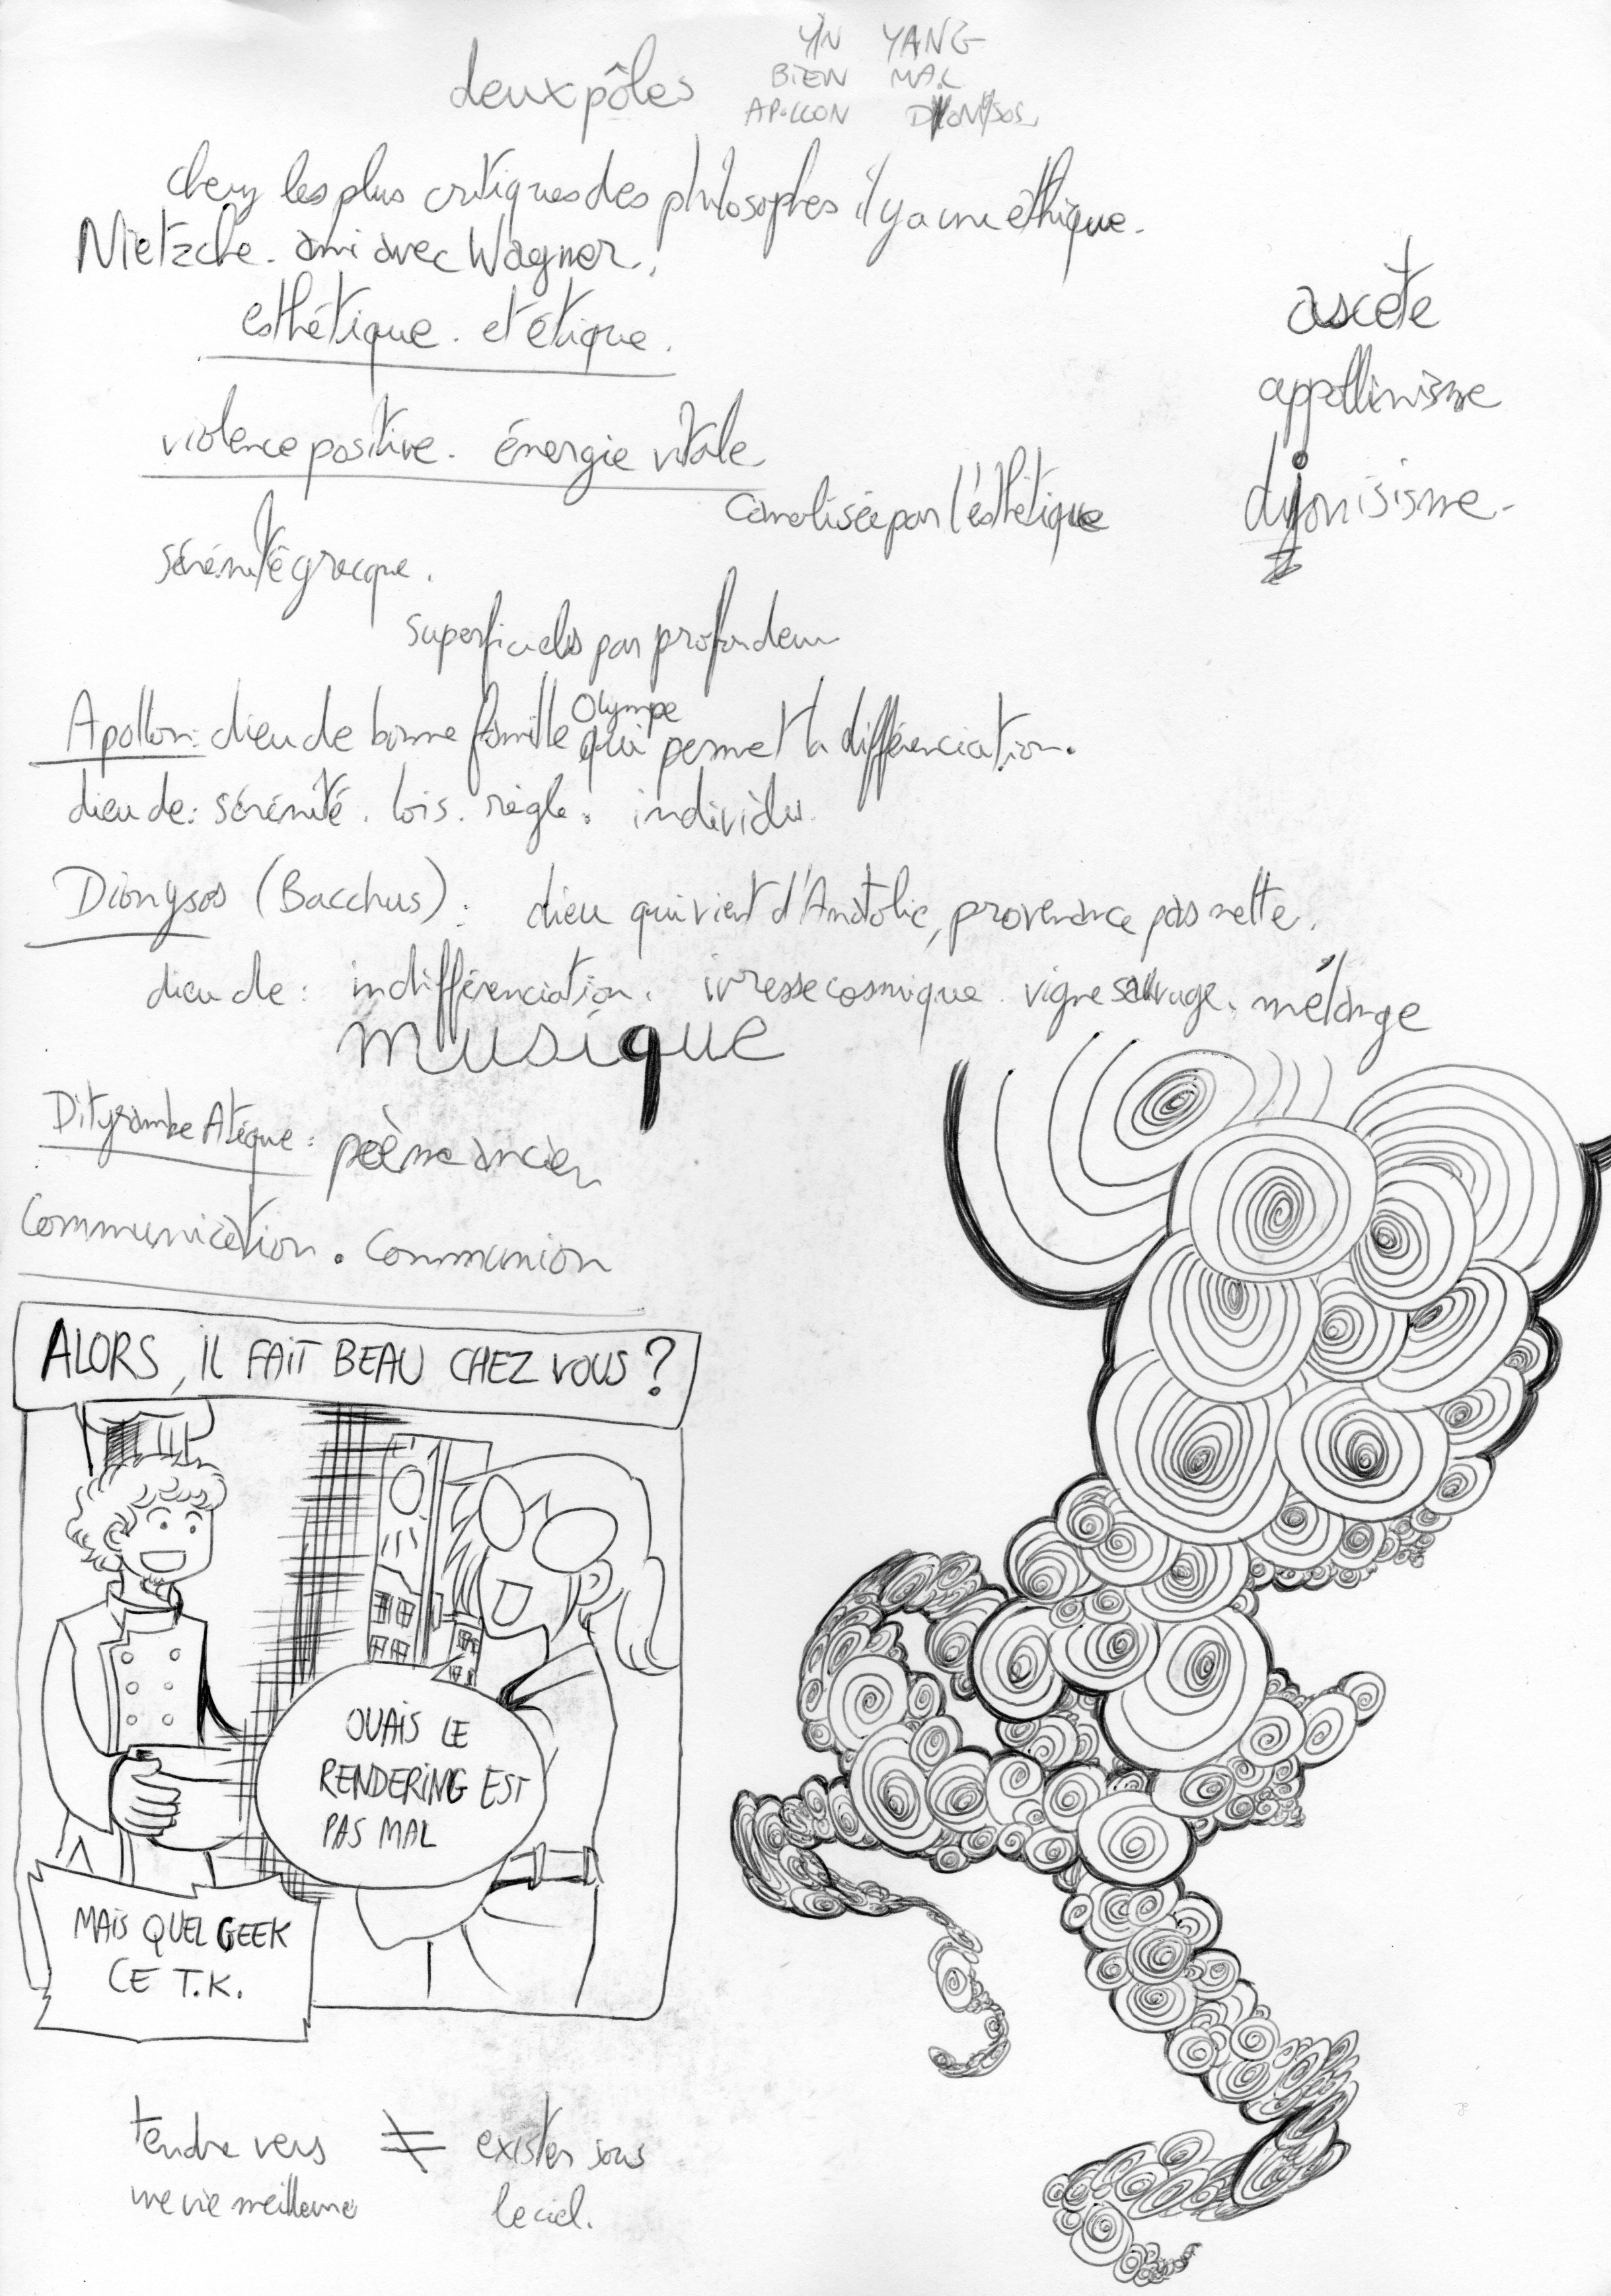 YIN YANG
deux pôles
BIEN MAL
APOLLON DIONYSOS
chez les plus critiques des philosophes il y a une éthique.
Nietzche. ami avec Wagner.
esthétique. et étique.
ascète
appollinisme
violence positive. énergie vitale.
canalisée par l'esthétique
dyonisisme.
sérénité grecque.
superficiels par profondeur
Olympe
Apollon: dieu de bonne famille qui permet la différenciation.
dieu de: sérénité. lois. règle. individu.
Dionysos (Bacchus): dieu qui vient d'Anatolie, provenance pas nette.
dieu de: indifférenciation. ivresse cosmique. vigne sauvage. mélange
musique
Dityrambe Atique: poème ancien
Communication. Communion
ALORS, IL FAIT BEAU CHEZ VOUS?
OUAIS LE
RENDERING EST
PAS MAL
MAIS QUEL GEEK
CE T.K.
tendre vers ≠ exister sous
une vie meilleure le ciel.